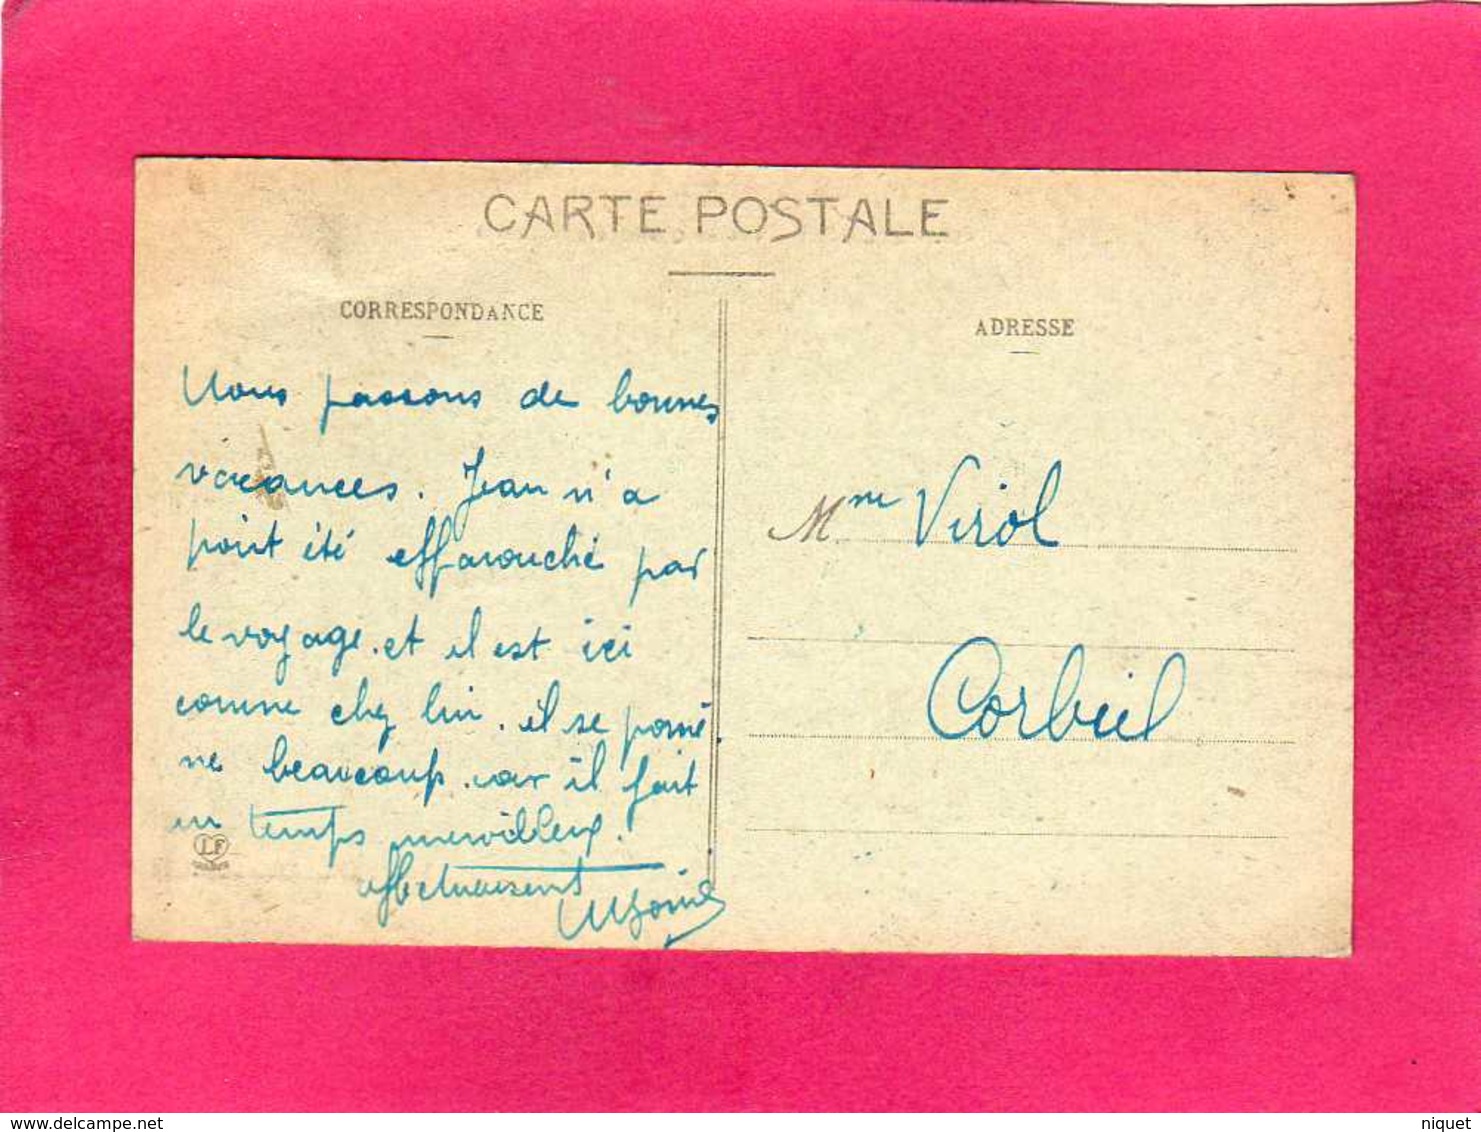 CARTE POSTALE
CORRESPONDANCE
Nous passons de bonnes
vacances. Jean n'a
point été effarouché par
le voyage. et il est ici
comme chez lui. il se promè
ne beaucoup. car il fait
un temps merveilleux.
affectueusement
LF
ADRESSE
Mme Virol
Corbeil
niquet